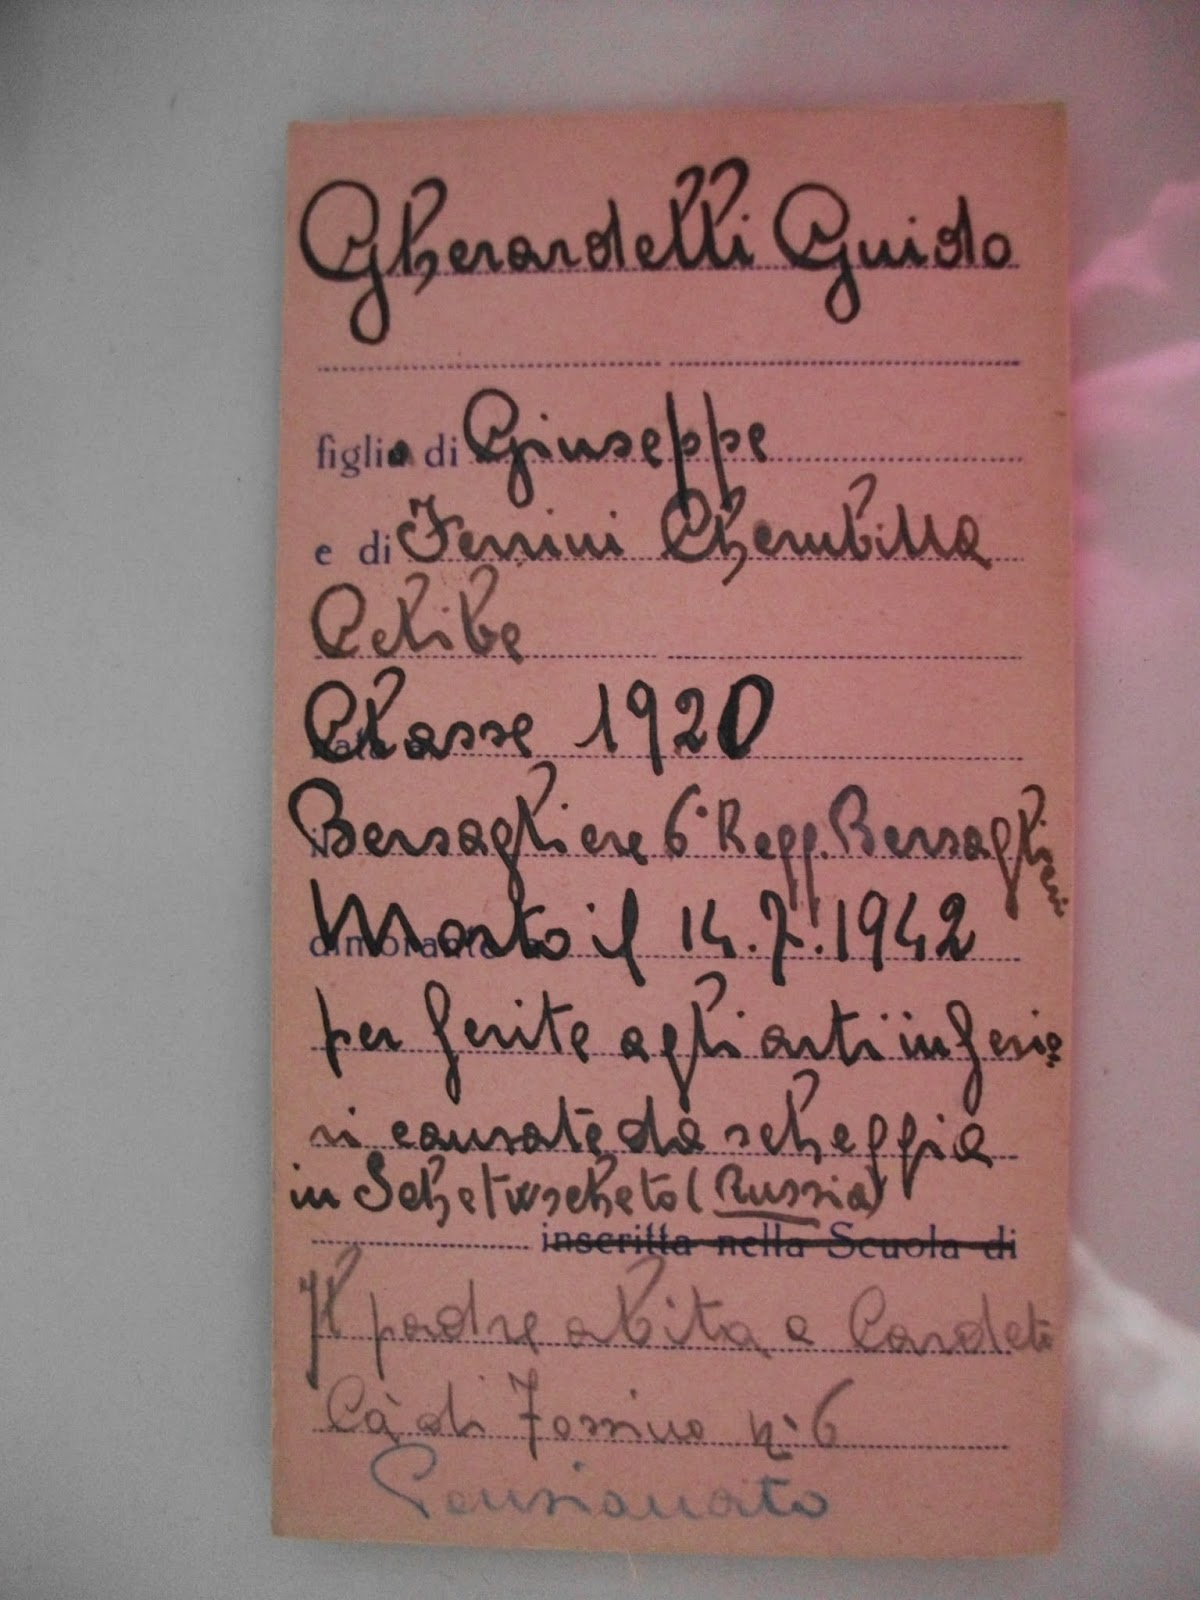 Gherardelli Guido
figlio di Giuseppe
e di Ferrini Cherubilla
Celibe
Classe 1920
Bersagliere 6° Regg. Bersaglieri
dimorante
Morto il 14.7.1942
per ferite agli arti inferio
ri causate da scheggia
in Schetwscheto (Russia)
inscritta nella Scuola di
Il padre abita a Cardeto
Cà di Fossino n° 6
Pensionato